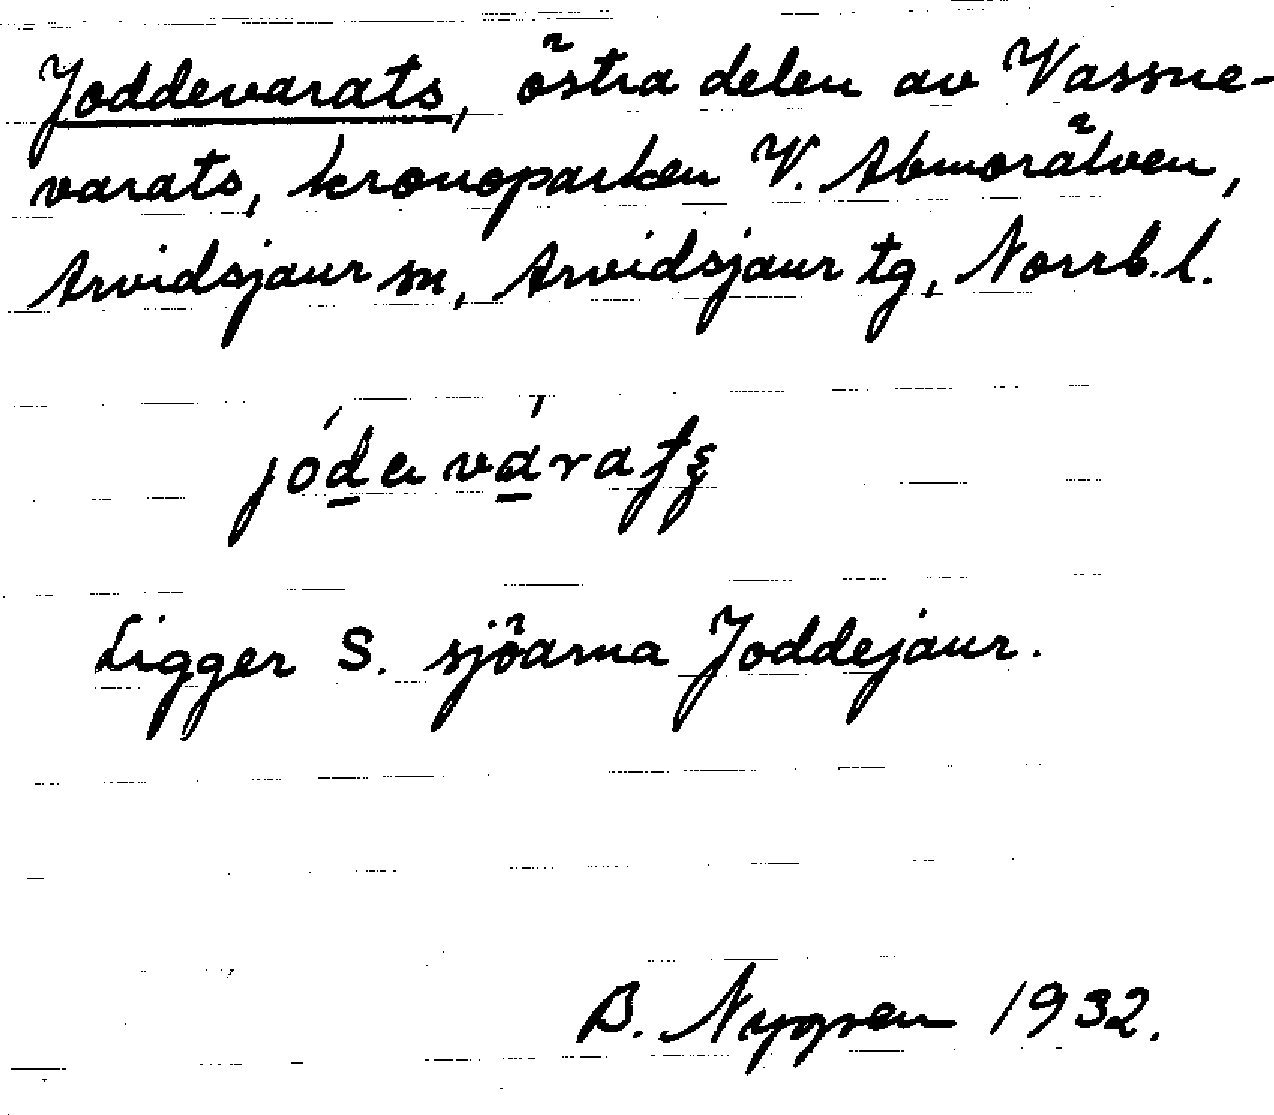 Joddevarats, östra delen av Vassne-
varats, kronoparken V. Abmorälven,
Arvidsjaur sn, Arvidsjaur tg, Norrb. l.
Ligger S. sjöarna Joddejaur.
B. Nygren 1932.